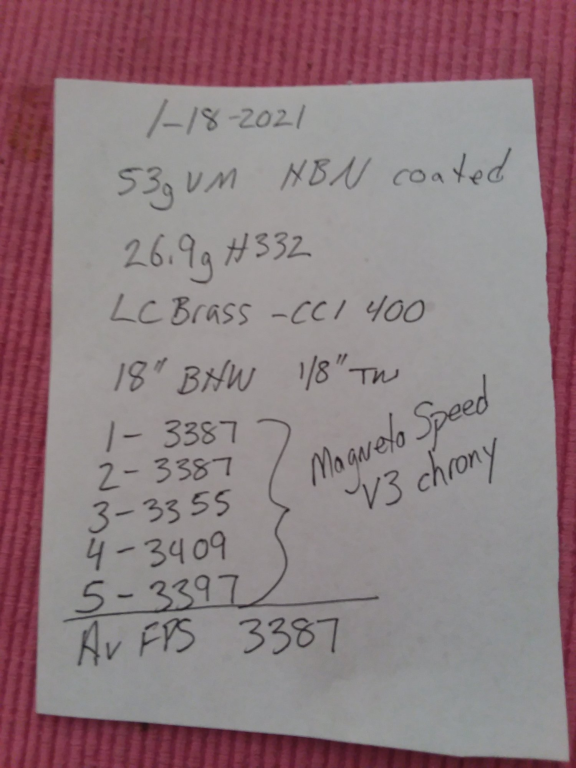 1-18-2021
53g VM HBN coated
26.9g H332
LC Brass - CCI 400
18" BHW 1/8" TW
1 - 3387
2 - 3387
3 - 3355
4 - 3409
5 - 3397
Magneto Speed
V3 chrony
Av FPS 3387